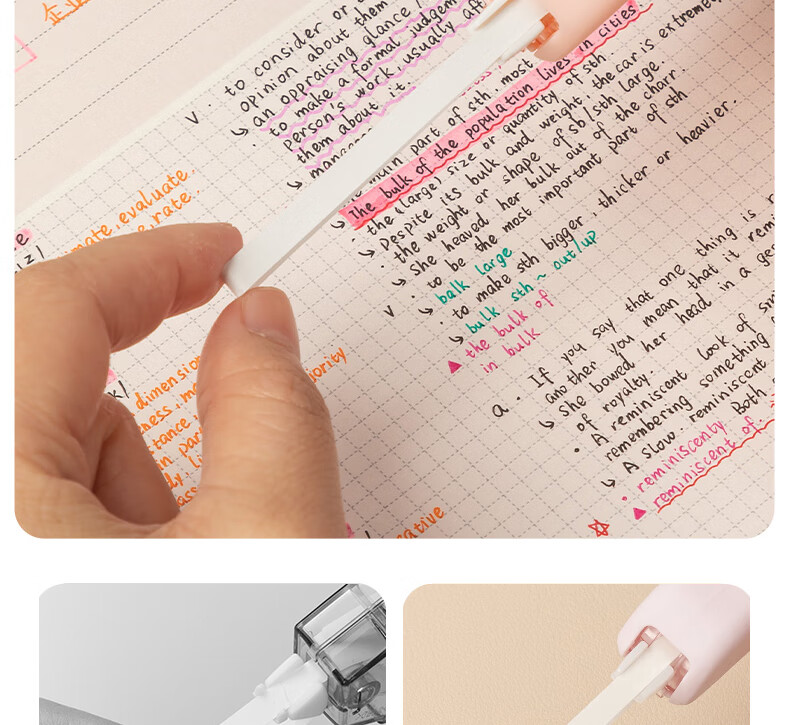 企业
v. to consider or
opinion about them
↳ an appraising glance /
· to make a formal judgem
person's work, usually aft
them about it.
↳ manage
main part of sth. most
↳ The bulk of the population lives in cities
· the (large) size or quantity of sth
↳ Despite its bulk and weight, the car is extremely
· the weight or shape of sb/sth large.
↳ She heaved her bulk out of the charr.
· to be the most important part of sth
↳ balk large
v · to make sth bigger, thicker or heavier.
↳ bulk sth ~ out/up
▲ the bulk of
in bulk
mate, evaluate
e, rate.
iz/
k/
dimension
ness, m
ority
stance
n par
ly li
ass
cative
a. If you say that one thing is r
another you mean that it remi
↳ She bowed her head in a ge
of royalty.
• A reminiscent look of sm
remembering something
↳ A slow. reminiscent
Both
· reminiscenty
▲ reminiscent of